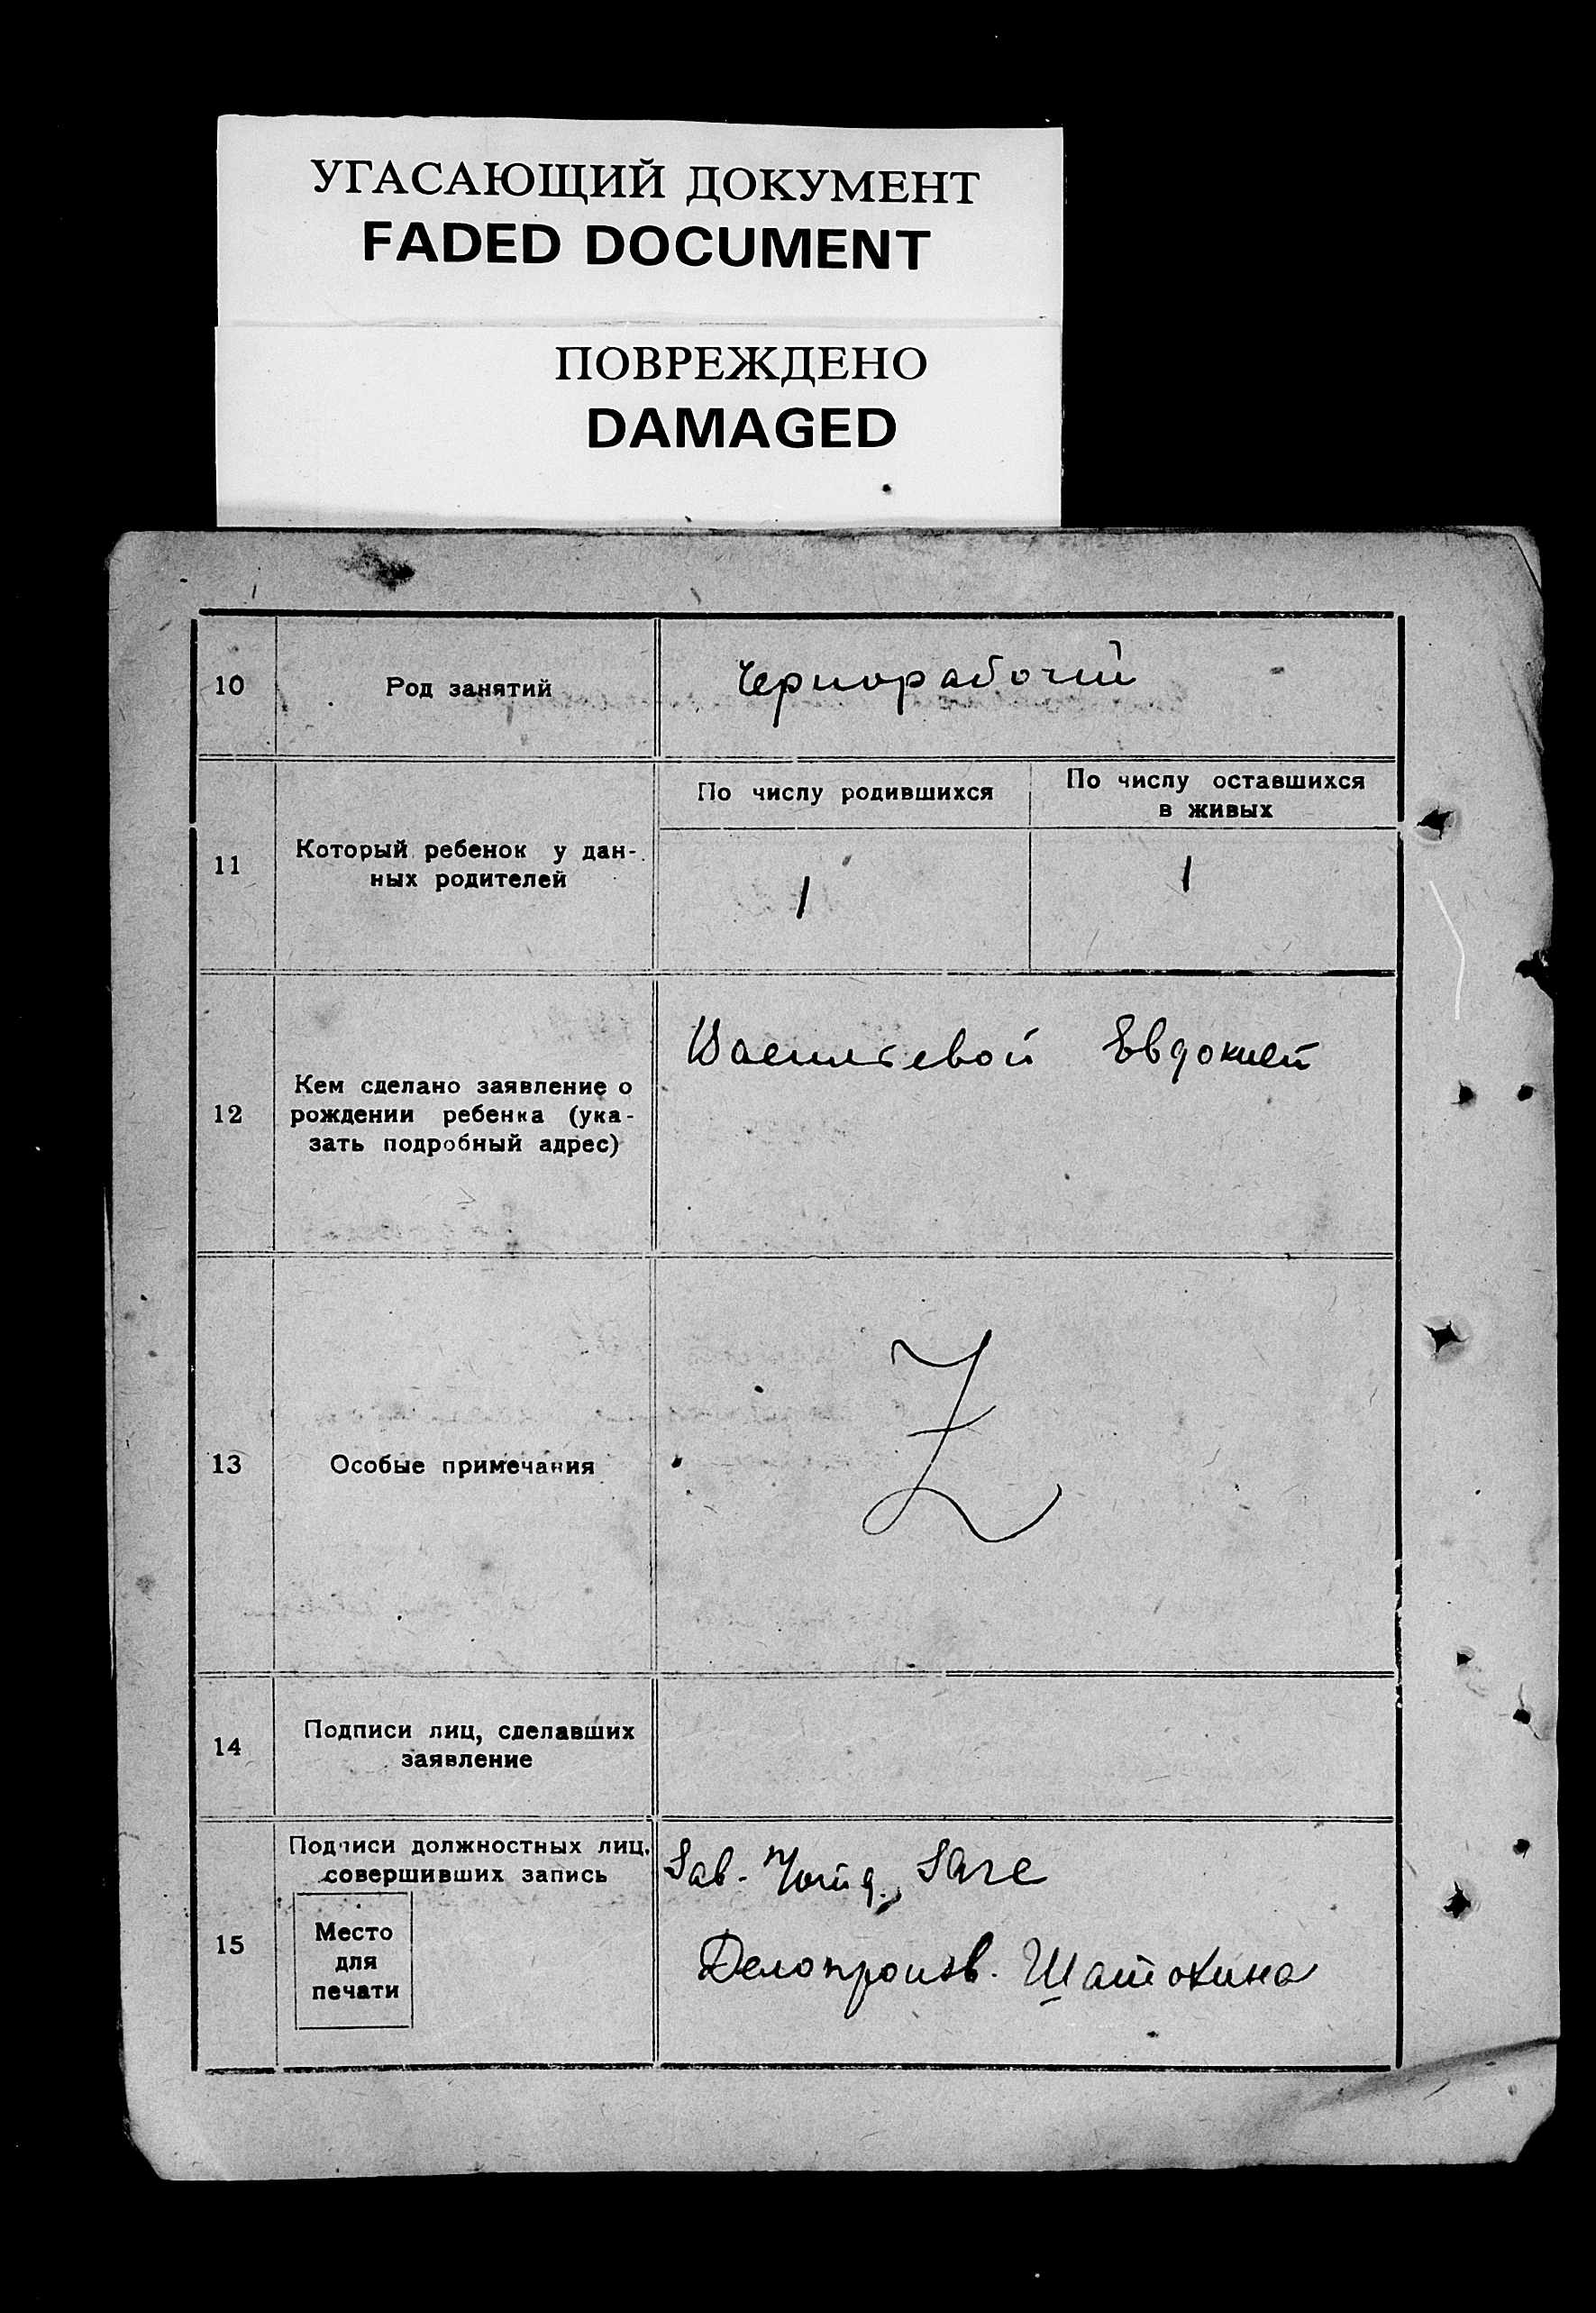 УГАСАЮЩИЙ ДОКУМЕНТ
FADED DOCUMENT
ПОВРЕЖДЕНО
DAMAGED
10
Род занятий
Чернорабочий
11
Который ребенок у дан-
ных родителей
По числу родившихся
1
По числу оставшихся
в живых
1
12
Кем сделано заявление о
рождении ребенка (ука-
зать подробный адрес)
Васильевой Евдокией
13
Особые примечания
Z
14
Подписи лиц, сделавших
заявление
15
Подписи должностных лиц,
совершивших запись
Место
для
печати
Зав.
Делопроизв. Шатохина